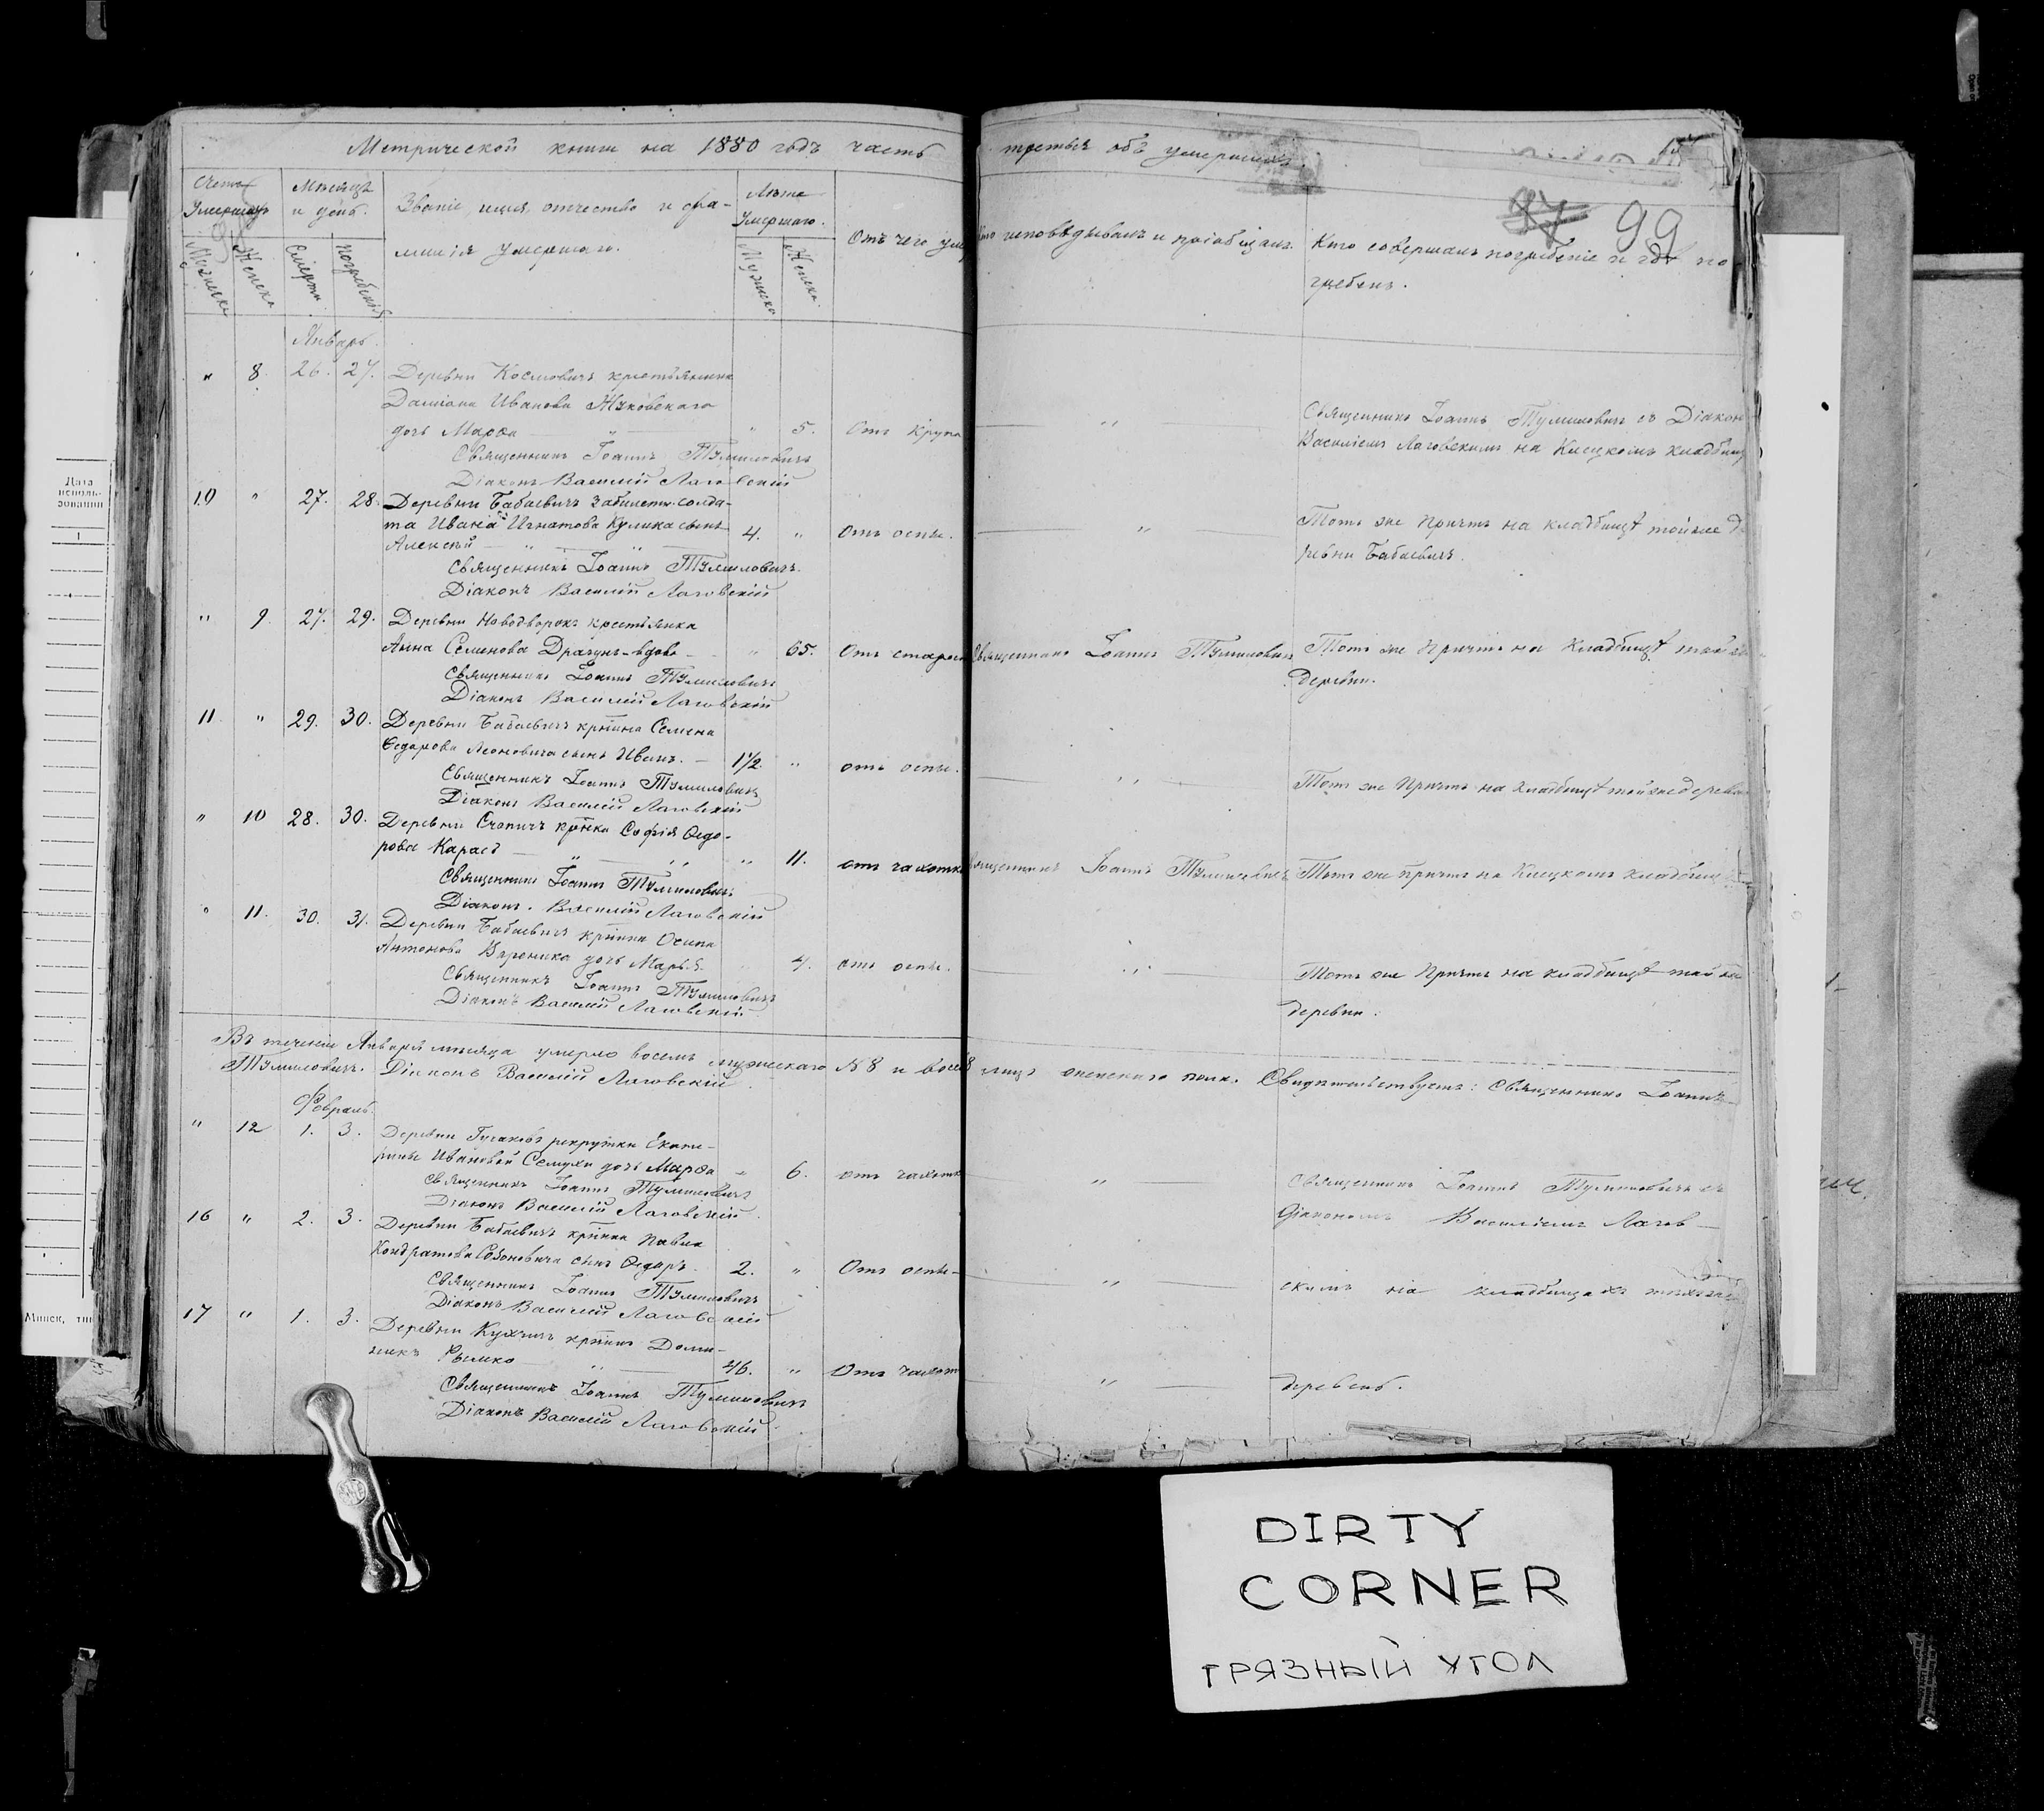 Метрической книги на 1880 годъ часть третья объ умершихъ.
99
Счетъ умершихъ
Мѣсяцъ и день.
Званіе, имя, отчество и фа-
милія умершаго.
Лѣта умершаго.
Отъ чего
исповѣдывалъ и пріобщалъ.
Кто совершалъ погребеніе и гдѣ по
гребенъ.
Мужеска
Женска
Смерти
Погребенія
Мужеска
Женска
Январь.
" 8. 26. 27. Деревни Космовичъ крестьянина
Даміана Иванова Жуковскаго
дочь Марѳа " 5. Отъ крупа "
Священникъ Іоаннъ Тумиловичъ съ Діакон
Василіемъ Лаговскимъ на Клецкомъ кладбищ
Священникъ Іоаннъ Тумиловичъ
Діаконъ Василій Лаговскій
10 " 27. 28. Деревни Бабаевичъ забилетн. солда-
та Ивана Игнатова Кулика сынъ 4. " Отъ оспы. "
Алексѣй
Тотъ же причтъ на кладбищѣ тойже де
ревни Бабаевичъ.
Священникъ Іоаннъ Тумиловичъ.
Діаконъ Василій Лаговскій
" 9. 27. 29. Деревни Новодворокъ крестьянка
Анна Семенова Драгунъ-вдова " 65. Отъ старос Священникъ Іоаннъ Тумиловичъ
Тотъ же причтъ на кладбищѣ той
деревни.
Священникъ Іоаннъ Тумиловичъ
Діаконъ Василій Лаговскій
11. " 29. 30. Деревни Бабаевичъ крнина Семена
Ѳедорова Леоновича сынъ Иванъ. 1½. " отъ оспы. "
Тотъ же причтъ на кладбищѣ тойже деревни
Священникъ Іоаннъ Тумиловичъ
Діаконъ Василій Лаговскій
" 10 28. 30. Деревни крнка Софія Ѳедо-
рова Карась " 11. отъ чахотки Священникъ Іоаннъ Тумиловичъ
Тотъ же причтъ на Клецкомъ кладбищ
Священникъ Іоаннъ Тумиловичъ
Діаконъ. Василій Лаговскій
" 11. 30. 31. Деревни Бабаевичъ крнина Осипа
Антонова дочь Марья. 4. отъ оспы. "
Тотъ же причтъ на кладбищѣ той же
деревни.
Священникъ Іоаннъ Тумиловичъ
Діаконъ Василій Лаговскій
Въ теченіе Января мѣсяца умерло восемь мужескаго № 8 и лицъ женскаго пола. Свидѣтельствуетъ: Священникъ Іоаннъ
Тумиловичъ. Діаконъ Василій Лаговскій
Февраль.
" 12 1. 3. Деревни рекрутки Екате-
рины Ивановой Семухи дочь Марѳа " 6. отъ чахотк "
Священникъ Іоаннъ Тумиловичъ съ
Священникъ Іоаннъ Тумиловичъ
Діаконъ Василій Лаговскій.
Діакономъ Василіемъ Лагов-
16 " 2. 3. Деревни Бабаевичъ крнина Павла
Кондратова сынъ Ѳедоръ. 2. " Отъ оспы "
скимъ на кладбищахъ
Священникъ Іоаннъ Тумиловичъ
Діаконъ Василій Лаговскій
17 " 1. 3. Деревни Кухчичъ крнинъ Доми-
никъ 46. " Отъ чахот "
деревень.
Священникъ Іоаннъ Тумиловичъ
Діаконъ Василій Лаговскій
Дата
исполь-
зования
Минск, тип
DIRTY
CORNER
ГРЯЗНЫЙ УГОЛ